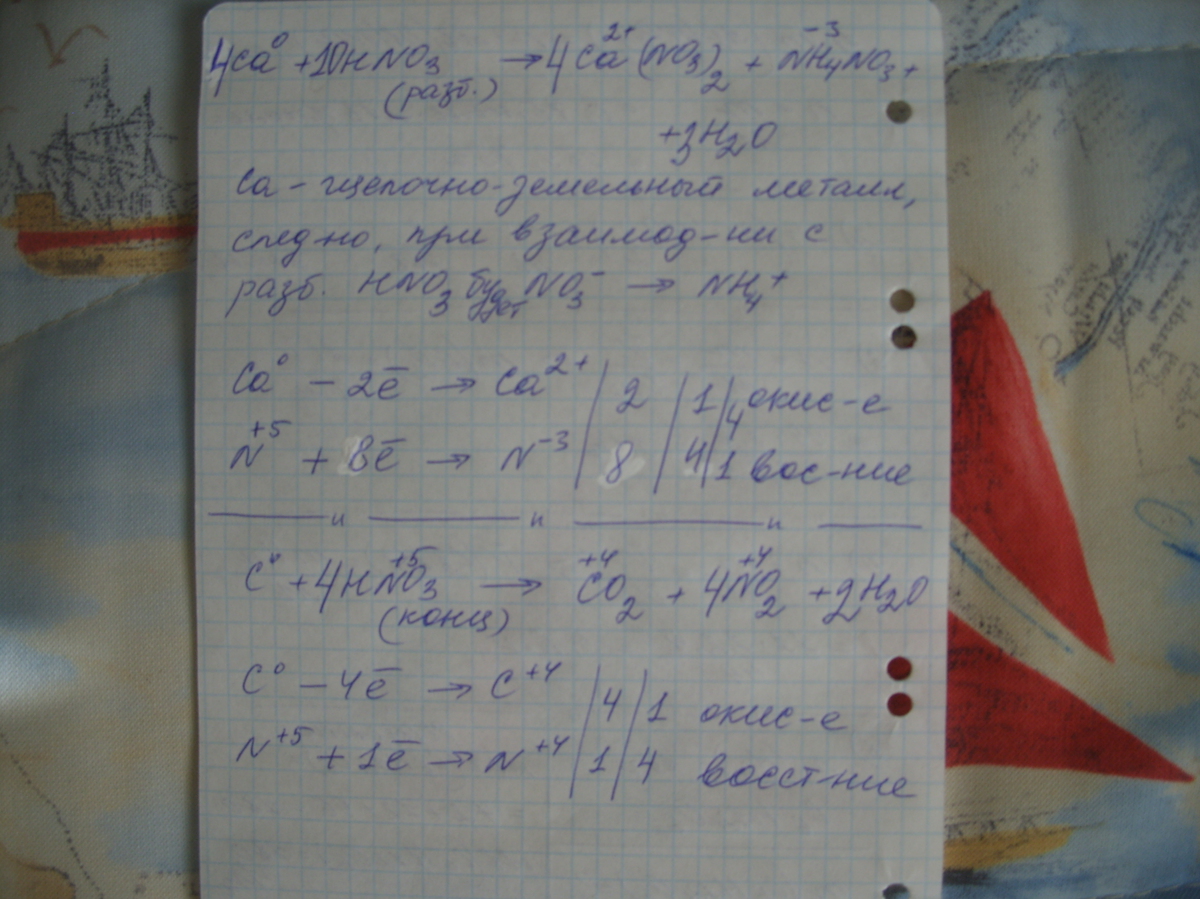 4Ca⁰ + 10HNO₃ → 4Ca²⁺(NO₃)₂ + N⁻³H₄NO₃ +
(разб.)
+ 3H₂O
Ca - щелочно-земельный металл,
след-но, при взаимод-ии с
разб. HNO₃ будет NO₃⁻ → NH₄⁺
Ca⁰ - 2ē → Ca²⁺ / 2 / 1 / 4 окис-е
N⁺⁵ + 8ē → N⁻³ / 8 / 4 / 1 вос-ние
—— и —— и —— и ——
C⁰ + 4HN⁺⁵O₃ → C⁺⁴O₂ + 4N⁺⁴O₂ + 2H₂O
(конц)
C⁰ - 4ē → C⁺⁴ / 4 / 1 окис-е
N⁺⁵ + 1ē → N⁺⁴ / 1 / 4 восст-ние